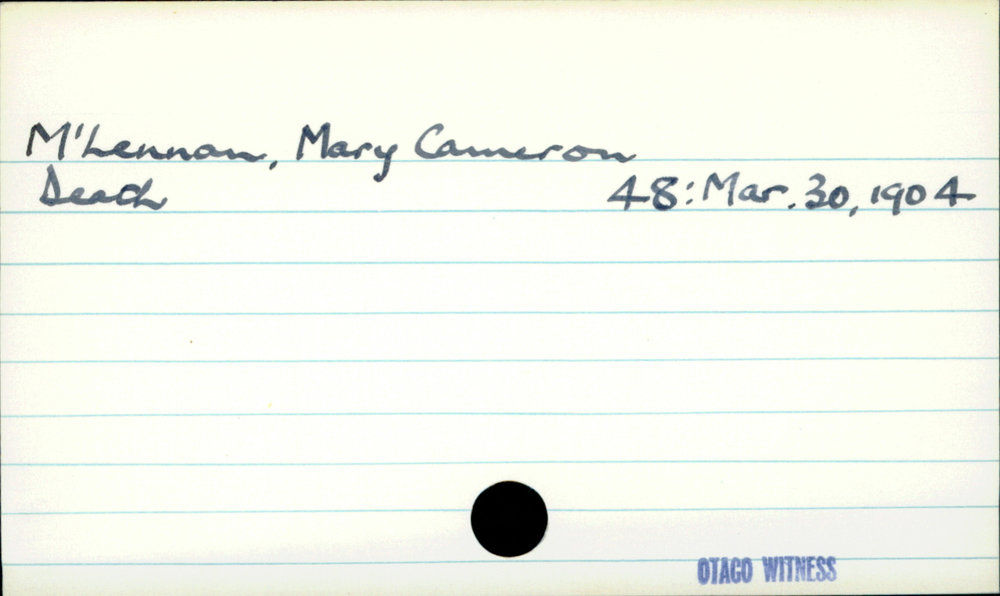 M'Lennan, Mary Cameron
Death 48: Mar. 30, 1904
OTAGO WITNESS